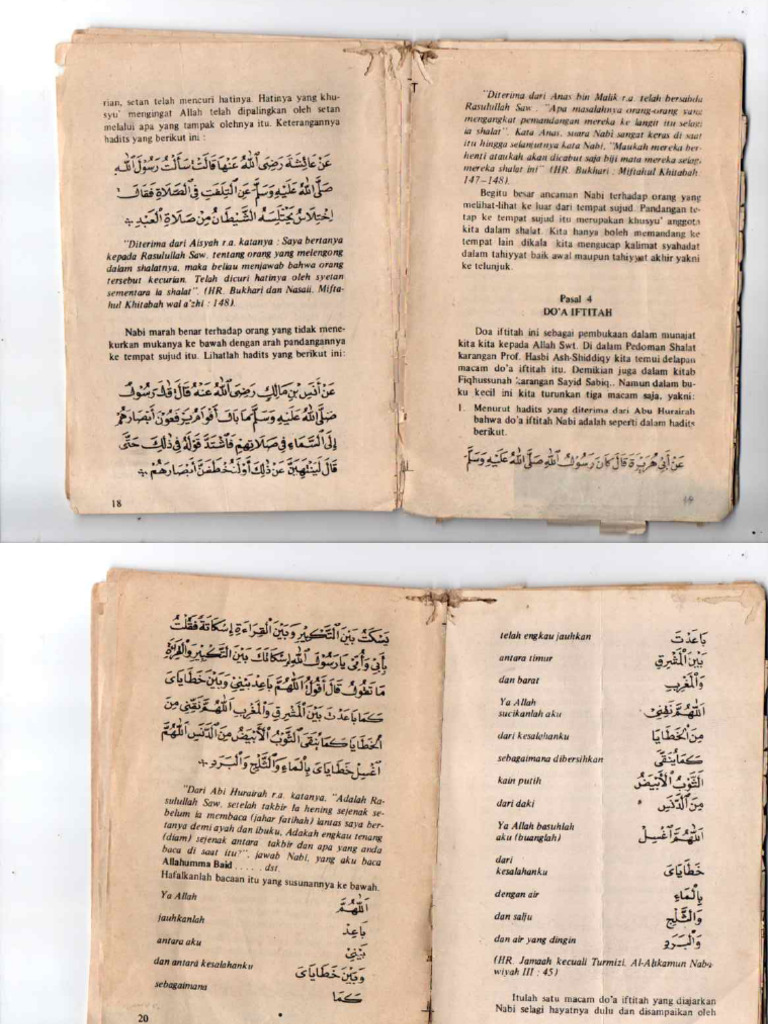 rian, setan telah mencuri hatinya. Hatinya yang khu-
syu' mengingat Allah telah dipalingkan oleh setan
melalui apa yang tampak olehnya itu. Keterangannya
hadits yang berikut ini :
عَنْ عَائِشَةَ رَضِيَ اللهُ عَنْهَا قَالَتْ سَأَلْتُ رَسُوْلَ اللهِ
صَلَّى اللهُ عَلَيْهِ وَسَلَّمَ عَنِ التَّلَفُّتِ فِى الصَّلَاةِ فَقَالَ:
اِخْتِلَاسٌ يَخْتَلِسُهُ الشَّيْطَانُ مِنْ صَلَاةِ الْعَبْدِ
"Diterima dari Aisyah r.a. katanya : Saya bertanya
kepada Rasulullah Saw. tentang orang yang melengong
dalam shalatnya, maka beliau menjawab bahwa orang
tersebut kecurian. Telah dicuri hatinya oleh syetan
sementara ia shalat". (HR. Bukhari dan Nasaii. Mifta-
hul Khitabah wal a'zhi : 148).
Nabi marah benar terhadap orang yang tidak mene-
kurkan mukanya ke bawah dengan arah pandangannya
ke tempat sujud itu. Lihatlah hadits yang berikut ini:
عَنْ أَنَسِ بْنِ مَالِكٍ رَضِيَ اللهُ عَنْهُ قَالَ قَالَ رَسُوْلُ
صَلَّى اللهُ عَلَيْهِ وَسَلَّمَ مَا بَالُ أَقْوَامٍ يَرْفَعُوْنَ أَبْصَارَهُمْ
إِلَى السَّمَاءِ فِى صَلَاتِهِمْ فَاشْتَدَّ قَوْلُهُ فِى ذٰلِكَ حَتَّى
قَالَ لَيَنْتَهِيَنَّ عَنْ ذٰلِكَ أَوْ لَتُخْطَفَنَّ أَبْصَارُهُمْ
18
"Diterima dari Anas bin Malik r.a. telah bersabda
Rasulullah Saw. : "Apa masalahnya orang-orang yang
mengangkat pemandangan mereka ke langit itu selagi
ia shalat". Kata Anas, suara Nabi sangat keras di saat
itu hingga selanjutnya kata Nabi, "Maukah mereka ber-
henti ataukah akan dicabut saja biji mata mereka selagi
mereka shalat ini" (HR. Bukhari : Miftahul Khitabah
147–148).
Begitu besar ancaman Nabi terhadap orang yang
melihat-lihat ke luar dari tempat sujud. Pandangan te-
tap ke tempat sujud itu merupakan khusyu' anggota
kita dalam shalat. Kita hanya boleh memandang ke
tempat lain dikala kita mengucap kalimat syahadat
dalam tahiyyat baik awal maupun tahiyyat akhir yakni
ke telunjuk.
Pasal 4
DO'A IFTITAH
Doa iftitah ini sebagai pembukaan dalam munajat
kita kita kepada Allah Swt. Di dalam Pedoman Shalat
karangan Prof. Hasbi Ash-Shiddiqy kita temui delapan
macam do'a iftitah itu. Demikian juga dalam kitab
Fiqhussunah karangan Sayid Sabiq.. Namun dalam bu-
ku kecil ini kita turunkan tiga macam saja, yakni:
1. Menurut hadits yang diterima dari Abu Hurairah
bahwa do'a iftitah Nabi adalah seperti dalam hadits
berikut.
عَنْ أَبِى هُرَيْرَةَ قَالَ كَانَ رَسُوْلُ اللهِ صَلَّى اللهُ عَلَيْهِ وَسَلَّمَ
19
يَسْكُتُ بَيْنَ التَّكْبِيْرِ وَبَيْنَ الْقِرَاءَةِ إِسْكَاتَةً فَقُلْتُ
بِأَبِى وَأُمِّى يَا رَسُوْلَ اللهِ إِسْكَاتُكَ بَيْنَ التَّكْبِيْرِ وَالْقِرَاءَةِ
مَا تَقُوْلُ قَالَ أَقُوْلُ اَللّٰهُمَّ بَاعِدْ بَيْنِيْ وَبَيْنَ خَطَايَايَ
كَمَا بَاعَدْتَ بَيْنَ الْمَشْرِقِ وَالْمَغْرِبِ اَللّٰهُمَّ نَقِّنِيْ مِنَ
الْخَطَايَا كَمَا يُنَقَّى الثَّوْبُ الْأَبْيَضُ مِنَ الدَّنَسِ اَللّٰهُمَّ
اغْسِلْ خَطَايَايَ بِالْمَاءِ وَالثَّلْجِ وَالْبَرَدِ
"Dari Abi Hurairah r.a. katanya, "Adalah Ra-
sulullah Saw. setelah takbir Ia hening sejenak se-
belum ia membaca (jahar fatihah) lantas saya ber-
tanya demi ayah dan ibuku, Adakah engkau tenang
(diam) sejenak antara takbir dan apa yang anda
baca di saat itu?", jawab Nabi, yang aku baca
Allahumma Baid . . . . . dst.
Hafalkanlah bacaan itu yang susunannya ke bawah.
Ya Allah اَللّٰهُمَّ
jauhkanlah بَاعِدْ
antara aku بَيْنِيْ
dan antara kesalahanku وَبَيْنَ خَطَايَايَ
sebagaimana كَمَا
20
telah engkau jauhkan بَاعَدْتَ
antara timur بَيْنَ الْمَشْرِقِ
dan barat وَالْمَغْرِبِ
Ya Allah
sucikanlah aku اَللّٰهُمَّ نَقِّنِيْ
dari kesalahanku مِنَ الْخَطَايَا
sebagaimana dibersihkan كَمَا يُنَقَّى
kain putih الثَّوْبُ الْأَبْيَضُ
dari daki مِنَ الدَّنَسِ
Ya Allah basuhlah
aku (buanglah) اَللّٰهُمَّ اغْسِلْ
dari
kesalahanku خَطَايَايَ
dengan air بِالْمَاءِ
dan salju وَالثَّلْجِ
dan air yang dingin وَالْبَرَدِ
(HR. Jamaah kecuali Turmizi, Al-Ahkamun Naba-
wiyah III : 45)
Itulah satu macam do'a iftitah yang diajarkan
Nabi selagi hayatnya dulu dan disampaikan oleh